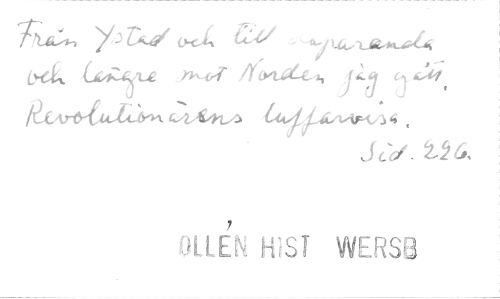 Från Ystad och till Haparanda
och längre mot Norden jag gått.
Revolutionärens luffarvisa.
Sid. 226.
OLLÉN HIST WERSB